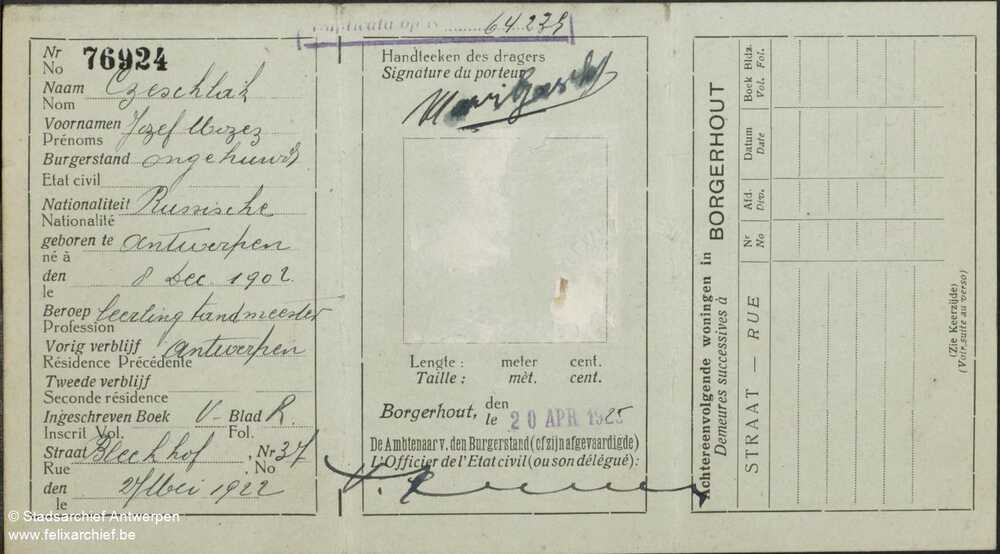 64.235
Nr
No 76924
Naam
Nom Czeschlak
Voornamen
Prénoms Jozef Mozez
Burgerstand ongehuwd
Etat civil
Nationaliteit Russische
Nationalité
geboren te Antwerpen
né à
den 8 Dec. 1902
le
Beroep leerling tandmeester
Profession
Vorig verblijf Antwerpen
Résidence Précédente
Tweede verblijf
Seconde résidence
Ingeschreven Boek V- Blad R.
Inscrit Vol. Fol.
Straat Bleekhof, Nr 37
Rue No
den 24 Mei 1922
le
Handteeken des dragers
Signature du porteur
Lengte : meter cent.
Taille : mèt. cent.
Borgerhout, den
le 20 APR 1925
De Ambtenaar v. den Burgerstand (of zijn afgevaardigde)
L'Officier de l'Etat civil (ou son délégué):
Achtereenvolgende woningen in BORGERHOUT
Demeures successives à
STRAAT — RUE
Nr
No
Afd.
Div.
Datum
Date
Boek Bldz.
Vol. Fol.
(Zie Keerzijde)
(Voir suite au verso)
© Stadsarchief Antwerpen
www.felixarchief.be